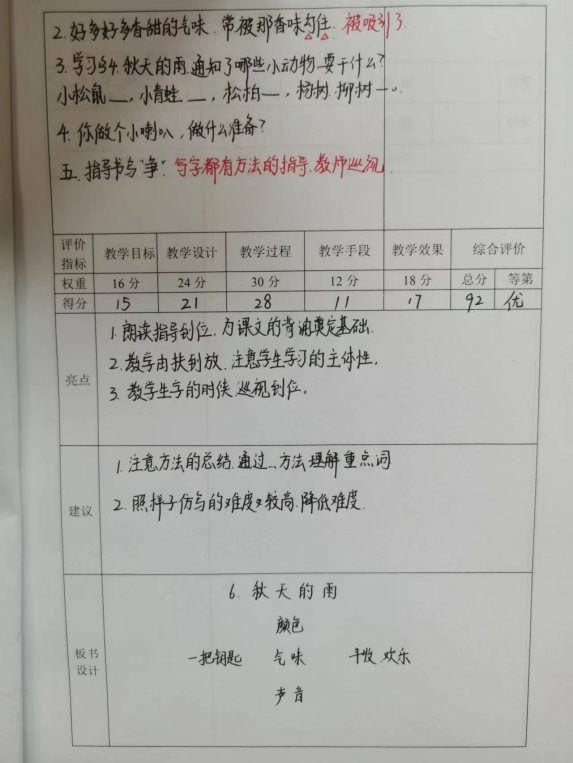 2. 好多好多香甜的气味, 常被那香味勾住. 被吸引了.
3. 学习§4. 秋天的雨通知了哪些小动物要干什么?
小松鼠__, 小青蛙__, 松柏__, 杨树.柳树__。
4. 你做个小喇叭, 做什么准备?
五. 指导书写"争". 写字都有方法的指导. 教师巡视.
评价指标 教学目标 教学设计 教学过程 教学手段 教学效果 综合评价
权重 16分 24分 30分 12分 18分 总分 等第
得分 15 21 28 11 17 92 优
亮点
1. 朗读指导到位, 为课文的背诵奠定基础.
2. 教学由扶到放, 注意学生学习的主体性.
3. 教学生字的时候, 巡视到位.
建议
1. 注意方法的总结. 通过...方法 理解重点词
2. 照样子仿写的难度较高. 降低难度.
板书设计
6. 秋天的雨
颜色
一把钥匙 气味 丰收.欢乐
声音